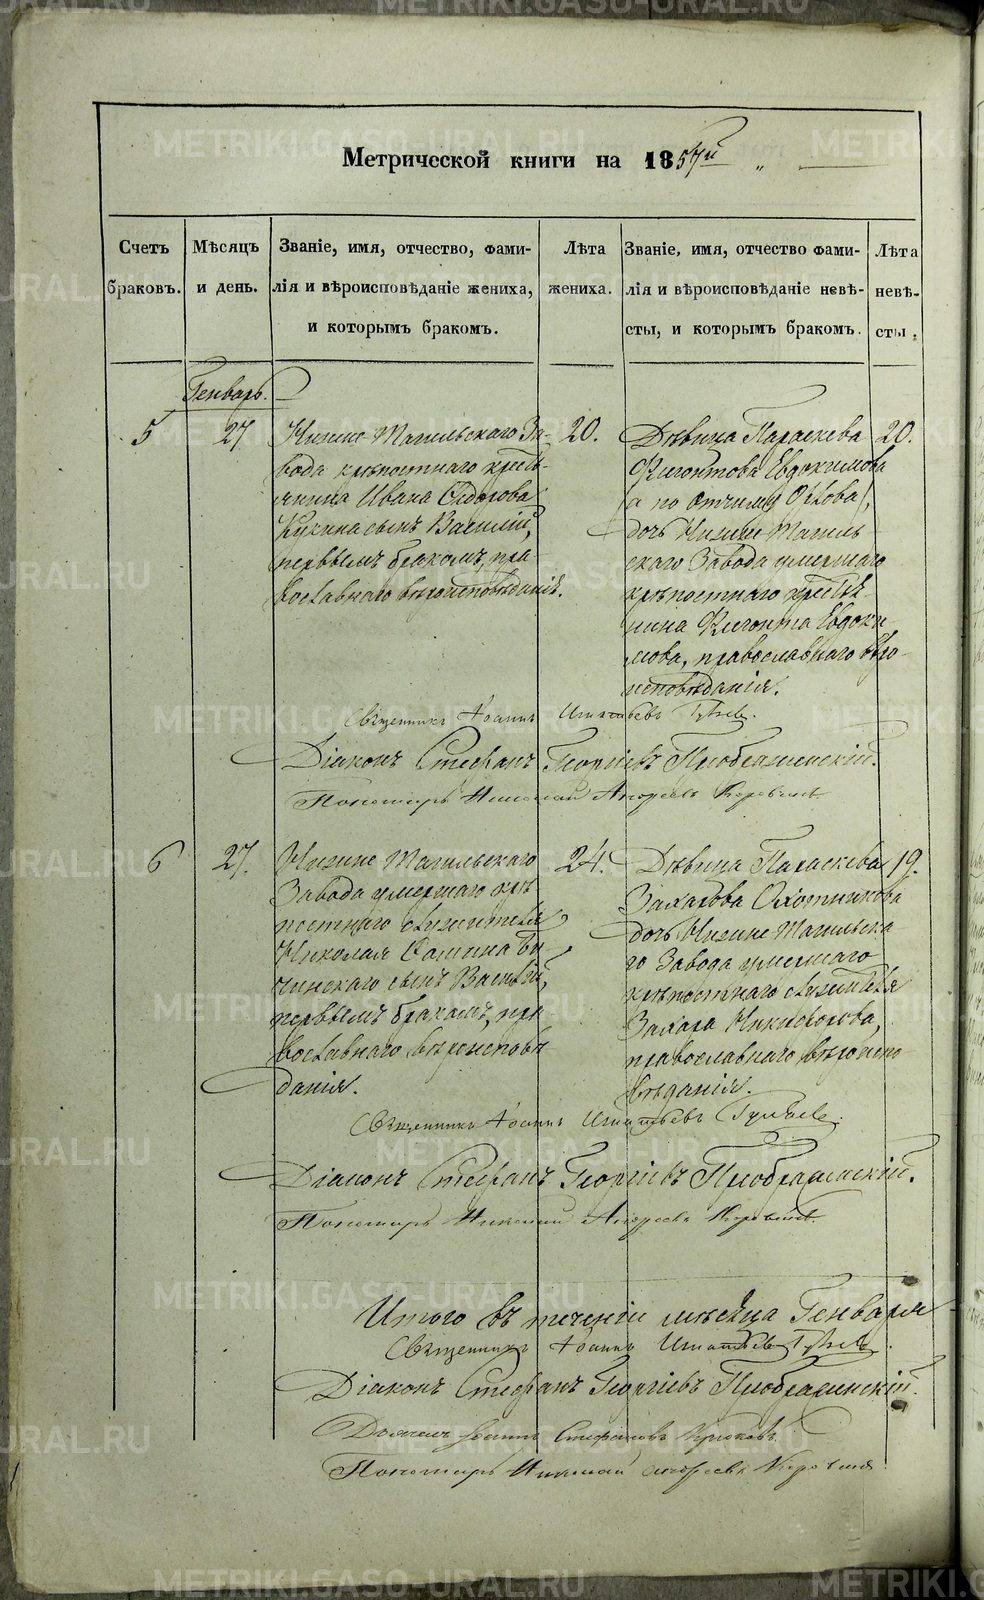 METRIKI.GASO-URAL.RU
Метрической книги на 1857й "
Счетъ браковъ.
Мѣсяцъ и день.
Званіе, имя, отчество, фами-
лія и вѣроисповѣданіе жениха,
и которымъ бракомъ.
Лѣта жениха.
Званіе, имя, отчество фами-
лія и вѣроисповѣданіе невѣ-
сты, и которымъ бракомъ.
Лѣта невѣ-
сты.
Генварь.
5
27
Нижне Тагильскаго За-
вода крѣпостнаго кресть-
янина Ивана Сидорова
Кукина сынъ Василій,
первымъ бракомъ, пра-
вославнаго вѣроисповѣданія.
20.
Дѣвица Параскева
Евдокимова
(а по отчиму),
дочь Нижне Тагиль
скаго Завода умершаго
крѣпостнаго крестья-
нина Евдоки
мова, православнаго вѣро-
исповѣданія.
20.
Священникъ Іоаннъ Игнатьевъ
Діаконъ Стефанъ Георгіевъ Преображенскій.
Пономарь Николай Андреевъ
6
27.
Нижне Тагильскаго
Завода умершаго крѣ
постнаго служителя
Николая
сынъ Василій,
первымъ бракомъ, пра
вославнаго вѣроисповѣ
данія.
24.
Дѣвица Параскева
Захарова Охотникова
дочь Нижне Тагильска
го Завода умершаго
крѣпостнаго служителя
Захара Никифорова,
православнаго вѣроиспо
вѣданія.
19.
Священникъ Іоаннъ Игнатьевъ
Діаконъ Стефанъ Георгіевъ Преображенскій.
Пономарь Николай Андреевъ
Итого въ теченіи мѣсяца Генваря
Священникъ Іоаннъ Игнатьевъ
Діаконъ Стефанъ Георгіевъ Преображенскій.
Іоаннъ Стефановъ
Пономарь Николай Андреевъ